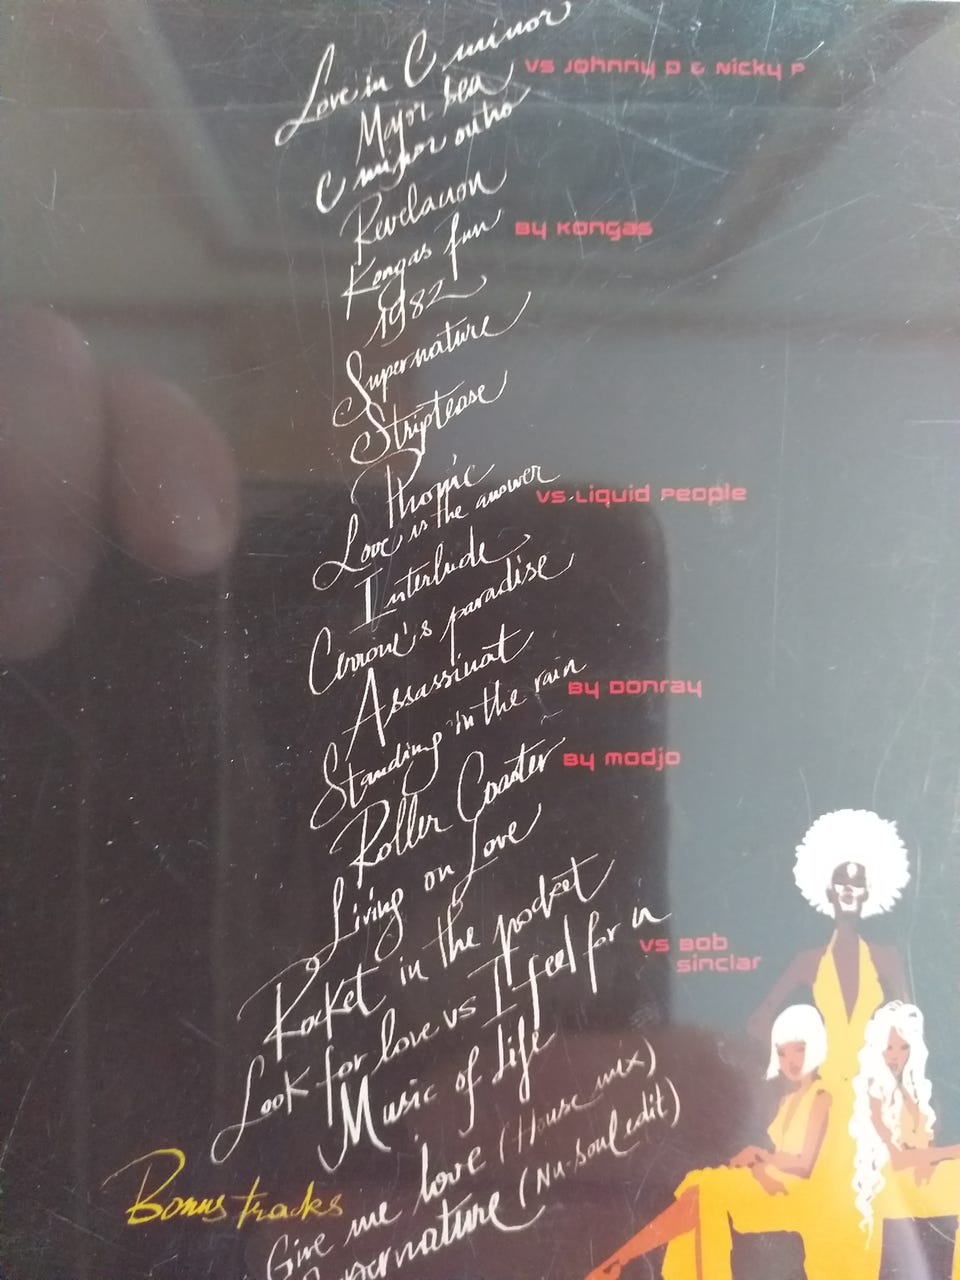 Love in C minor
vs Johnny D & Nicky P
Major sea
C minor outro
Revelacion
Kongas fun
By Kongas
1982
Supernature
Striptease
Phonic
Love is the answer
vs Liquid People
Interlude
Cerrone's paradise
Assassinat
Standing in the rain
By Donray
Roller Coaster
By Modjo
Living on Love
Rocket in the pocket
Look for love vs I feel for u
vs Bob
sinclar
Music of Life
Bonus tracks
Give me love (House mix)
Supernature (Nu-soul edit)